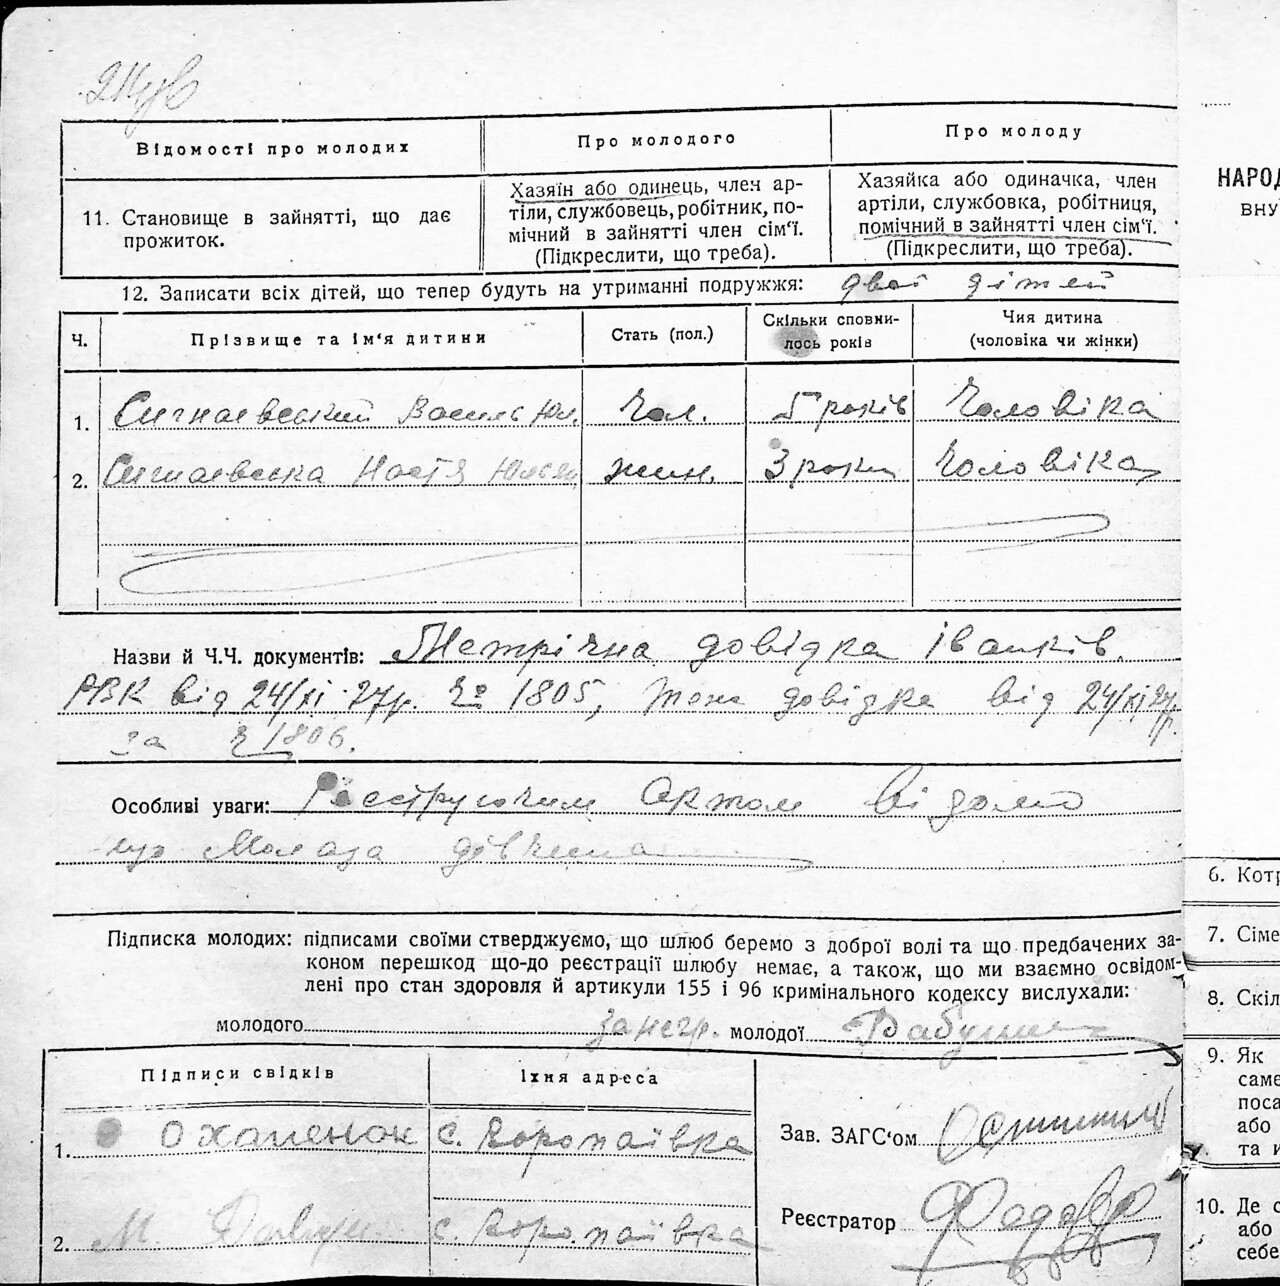 Відомості про молодих
Про молодого
Про молоду
11. Становище в зайнятті, що дає прожиток.
Хазяїн або одинець, член ар-
тілі, службовець, робітник, по-
мічний в зайнятті член сім'ї.
(Підкреслити, що треба).
Хазяйка або одиначка, член
артілі, службовка, робітниця,
помічний в зайнятті член сім'ї.
(Підкреслити, що треба).
12. Записати всіх дітей, що тепер будуть на утриманні подружжя: двоє дітей
Ч.
Прізвище та ім'я дитини
Стать (пол.)
Скільки сповни-
лось років
Чия дитина
(чоловіка чи жінки)
1. Сигнаевський Василь Юл. Чол. 5 років Чоловіка
2. Сигнаевська Настя жин. 3 роки Чоловіка
Назви й Ч.Ч. документів: Метрічна довідка Іванків.
РВК від 24/XI-27р. Чо 1805, довідка від 24/XI 27р.
за Ч 1806.
Особливі уваги: Реєструючим Актом відомо
що Молада дівчина
Підписка молодих: підписами своїми стверджуємо, що шлюб беремо з доброї волі та що передбачених за-
коном перешкод що-до реєстрації шлюбу немає, а також, що ми взаємно освідом-
лені про стан здоровля й артикули 155 і 96 кримінального кодексу вислухали:
молодого занегр. молодої
Підписи свідків
Їхня адреса
1. О Хапенок с. Коропаївка
Зав. ЗАГС'ом
2. М. с. Коропаївка
Реєстратор
НАРОД
ВНУ
6. Кот
7. Сіме
8. Скіл
9. Як
саме
поса
або
та и
10. Де с
або
себе